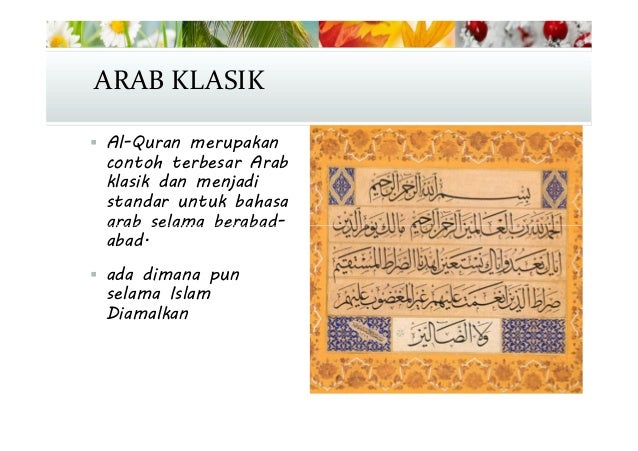 ARAB KLASIK
Al-Quran merupakan
contoh terbesar Arab
klasik dan menjadi
standar untuk bahasa
arab selama berabad-
abad.
ada dimana pun
selama Islam
Diamalkan
بسم الله الرحمن الرحيم
الحمد لله رب العالمين الرحمن الرحيم مالك يوم الدين
إياك نعبد وإياك نستعين اهدنا الصراط المستقيم
صراط الذين أنعمت عليهم غير المغضوب عليهم
ولا الضالين